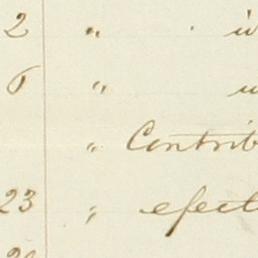 2 "
6 "
" Contrib
23 " efect